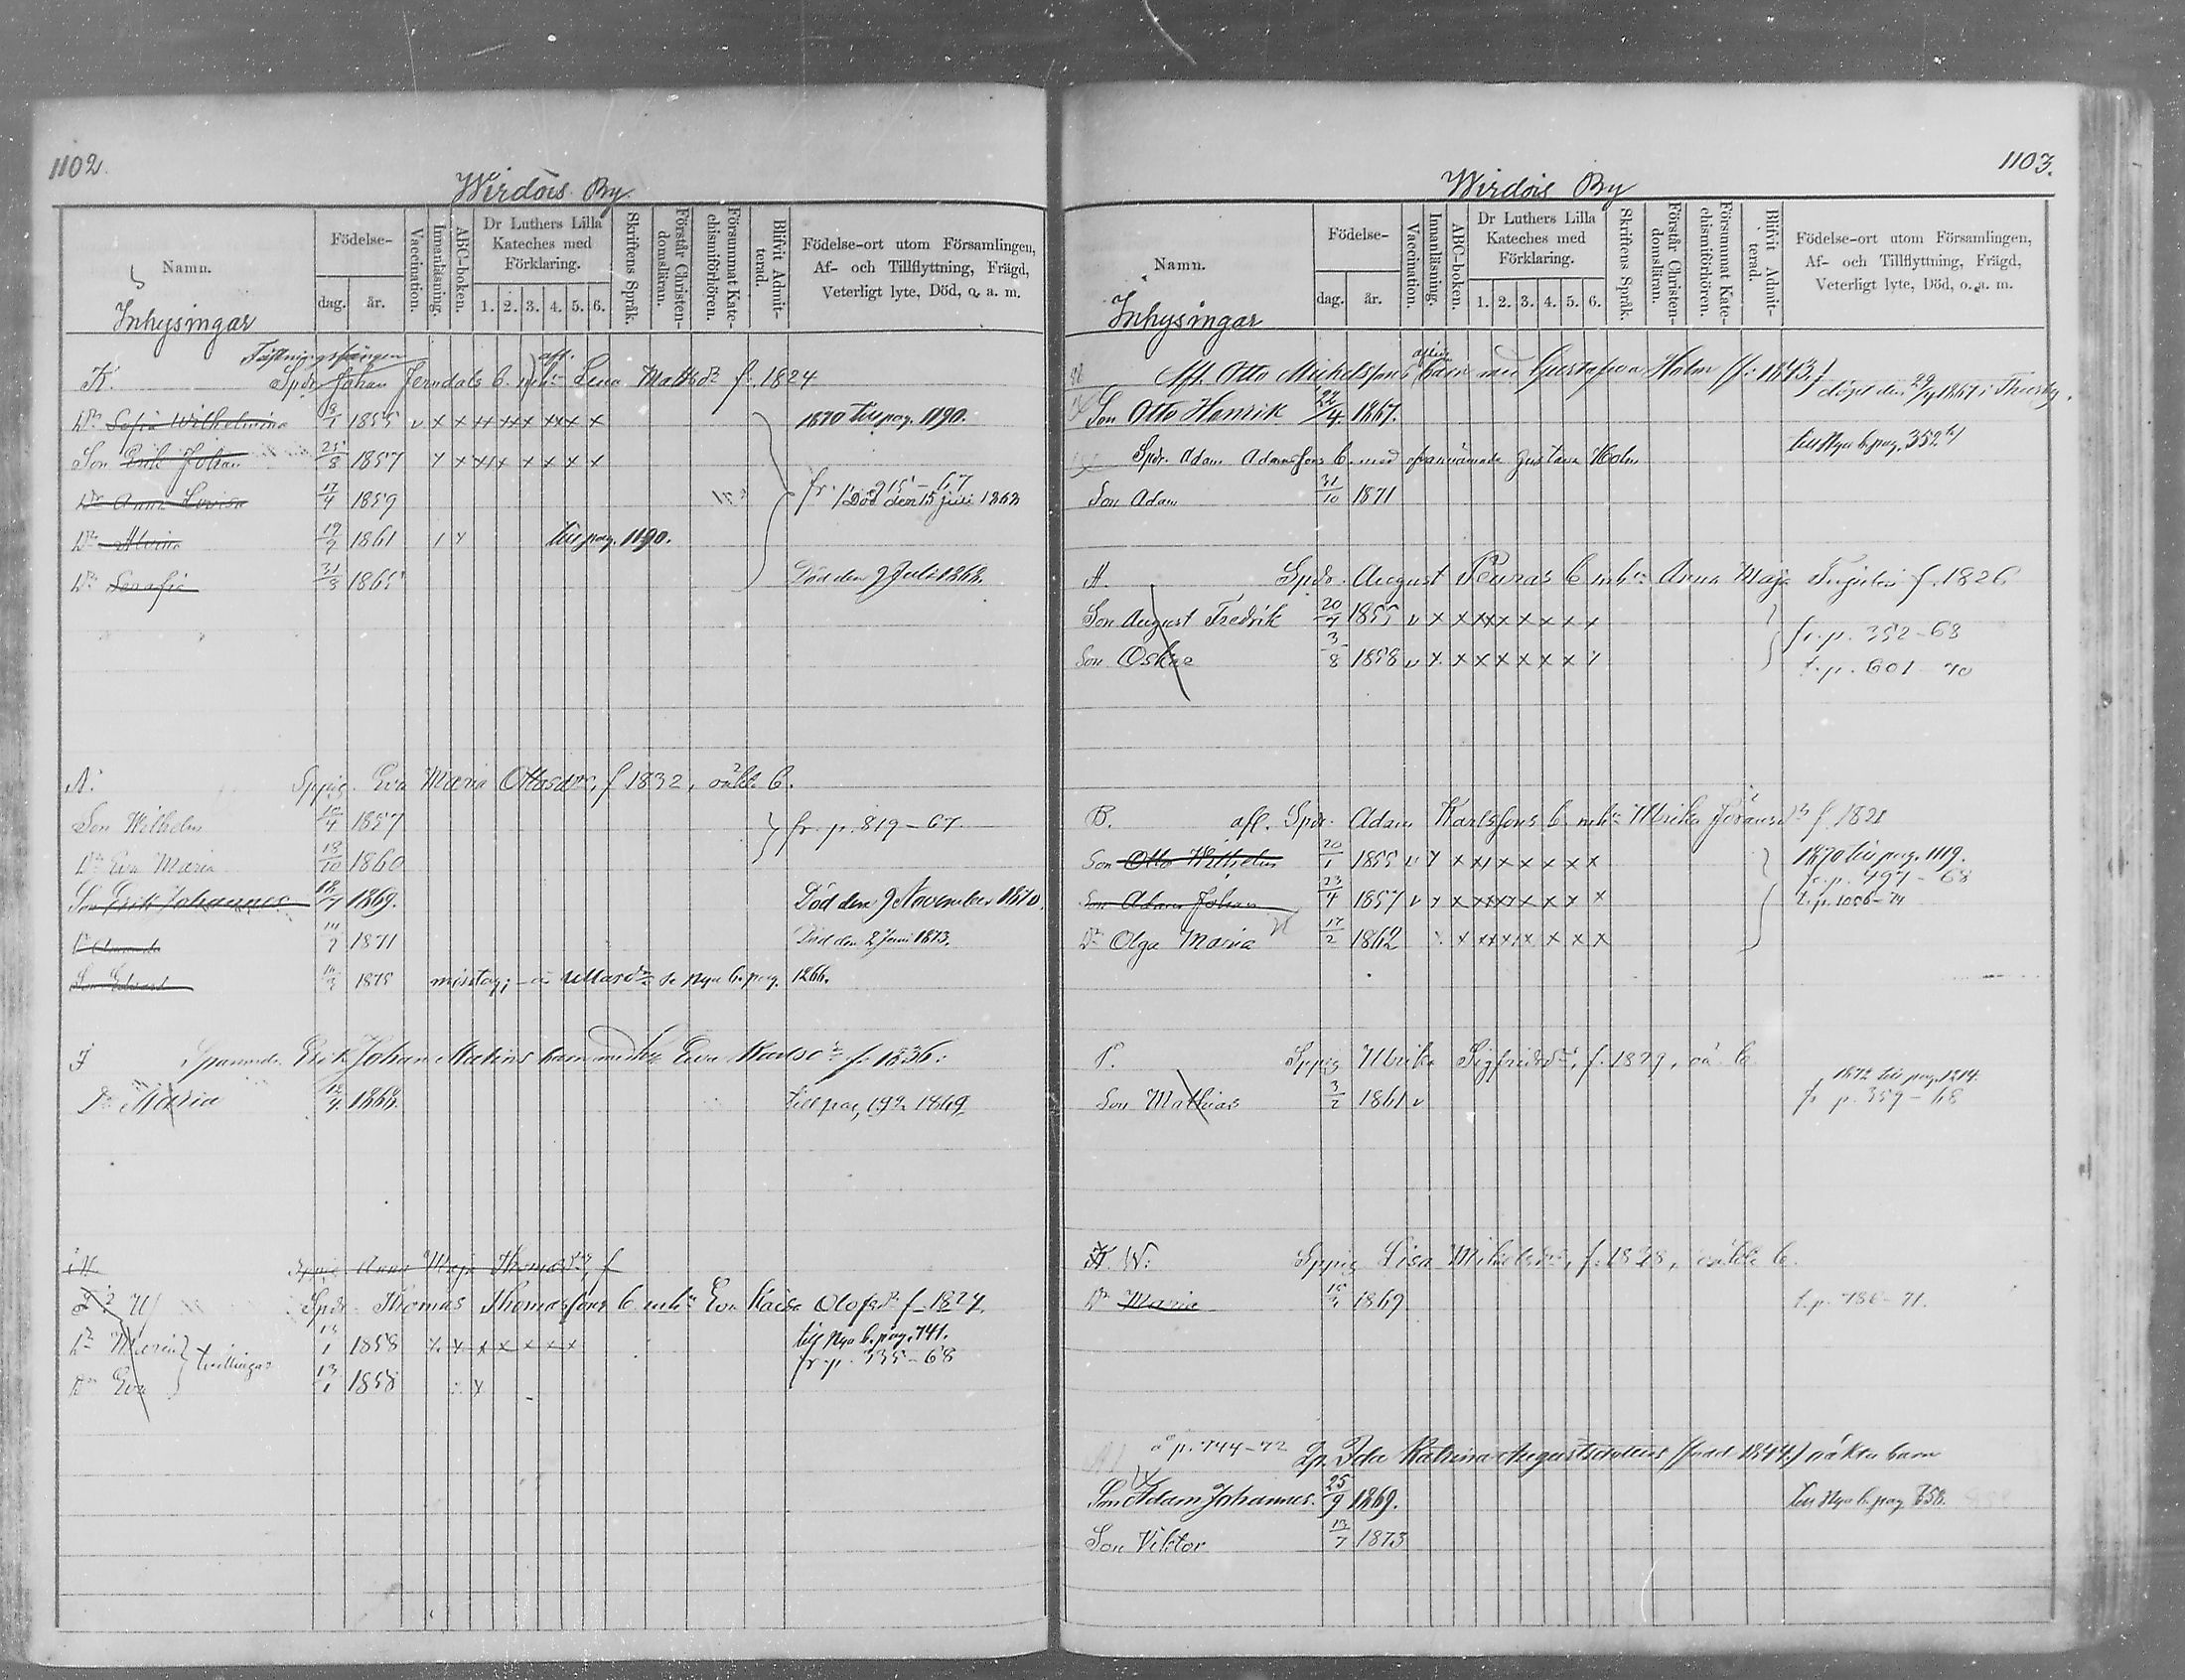 1102.
Wirdois By
Namn.
Födelse-
dag.
år.
Vaccination.
Innanläsning.
ABC-boken.
Dr Luthers Lilla Kateches med Förklaring.
1. 2. 3. 4. 5. 6.
Skriftens Språk.
Förstår Christen-domsläran.
Försummat Kate-chismiförhören.
Blifvit Admit-terad.
Födelse-ort utom Församlingen,
Af- och Tillflyttning, Frägd,
Veterligt lyte, Död, o. a. m.
Inhysingar
Fästningsfången afl.
K. Spdr Johan Jerndals b. m. h. Lena Mattsdr f. 1824
Dr Sofia Wilhelmina 1855 v x x xx xxx xxx x 1870 till pag. 1190.
Son Erik Johan 25/8 1857
Dr Anna Lovisa 17/4 1859 Död den 15 juli 1868
Dr Alvina 19/9 1861 till pag. 1190.
Dr Serafia 31/3 1865 Död den 9 Juli 1868.
A. Sppig. Eva Maria Ottosdr, f 1832, oäkta b.
Son Wilhelm 1857 fr. p. 819-67
Dr Eva Maria 18/10 1860
Son Erik Johannes 18/7 1869. Död den 9 November 1870.
Dr Amanda 1871 Död den 2 Juni 1873.
Son Edvard 1875 misstag; se Nya b. pag. 1266.
J Erik Johan Matins barn med Eva Karlsdr f. 1836.
Dr Maria 1868. Till pag. 1869
Sppig Anna Maja Thomasdr, f
Spdr Thomas Thomassons b m. h. Eva Kaisa Olofsdr f. 1824.
Dr Maria } tvillingar 13/1 1858 till Nya b. pag. 741.
fr p. 335-68
Dr Eva 13/1 1858
1103.
Wirdois By
Namn.
Födelse-
dag.
år.
Vaccination.
Innanläsning.
ABC-boken.
Dr Luthers Lilla Kateches med Förklaring.
1. 2. 3. 4. 5. 6.
Skriftens Språk.
Förstår Christen-domsläran.
Försummat Kate-chismiförhören.
Blifvit Admit-terad.
Födelse-ort utom Församlingen,
Af- och Tillflyttning, Frägd,
Veterligt lyte, Död, o. a. m.
Inhysingar
Afl. Otto Michelssons barn med Gustafva Holm (f. 1843.)
Son Otto Henrik 22/4. 1867. död den 29/4 1867 i Thusby.
Spdr. Adam Adamssons b. med ofvannämnda Gustava Holm till Nya b. pag. 352
Son Adam 31/10 1871
A. Spdr. August Peuras b m. h. Anna Maja f. 1826
Son August Fredrik 20/7 1855 v x x xx x x x x x fr. p. 352-68
Son Oskar 3/8 1858 v x x x x x x x x t. p. 601-70
B. afl. Spdr. Adam Karlssons b. m. h. Ulrika Göransdr f. 1821
Son Otto Wilhelm 20/1 1855 1870 till pag. 1119.
fr. p. 497-68
Son Adam Johan 23/4 1857 t. p. 1056-74
Dr Olga Maria 17/2 1862
P. Sppig Ulrika Sigfridsdr, f. 1829, oä b
1872 till pag. 1214.
Son Mathias 3/2 1861 v fr p. 359-68
W: Sppig Lisa Mikelsdr, f. 1828, oäkta b.
Dr Maria 1869 t. p. 786-71.
p. 744-72 Pp. Ida Katrina Augustsdotters (född 1844) oäkta barn
Son Adam Johannes. 25/9 1869. till Nya b. pag. 858.
Son Viktor 13/7 1873